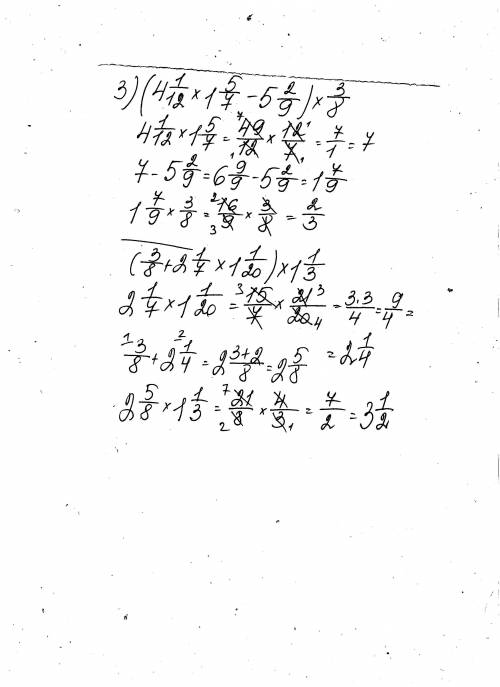 3) (4 1/12 × 1 5/7 − 5 2/9) × 3/8
4 1/12 × 1 5/7 = 49/12 × 12/7 = 7/1 = 7
7 − 5 2/9 = 6 9/9 − 5 2/9 = 1 7/9
1 7/9 × 3/8 = 16/9 × 3/8 = 2/3
(3/8 + 2 1/7 × 1 1/20) × 1 1/3
2 1/7 × 1 1/20 = 15/7 × 21/20 = 3·3/4 = 9/4 =
3/8 + 2 1/4 = 2 3+2/8 = 2 5/8 = 2 1/4
2 5/8 × 1 1/3 = 21/8 × 4/3 = 7/2 = 3 1/2